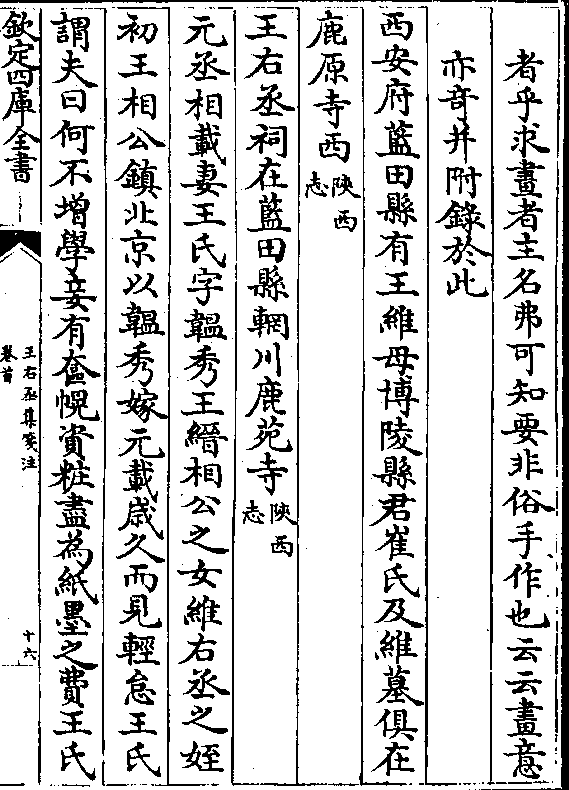 者乎求畫者主名弗可知要非俗手作也云云畫意
亦竒并附錄於此
西安府藍田縣有王維母博陵縣君崔氏及維墓俱在
鹿原寺西陜西志
王右丞祠在藍田縣輞川鹿苑寺陜西志
元丞相載妻王氏字韞秀王縉相公之女維右丞之姪
初王相公鎮北京以韞秀嫁元載歳久而見輕怠王氏
謂夫曰何不增學妾有奩幌資粧盡為紙墨之費王氏
欽定四庫全書
王右丞集箋注
卷首
十六